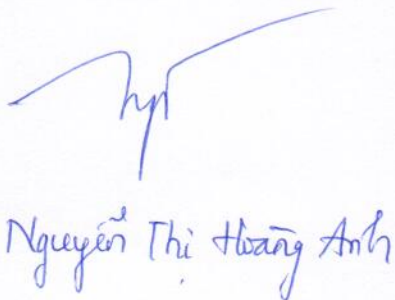 Nguyễn Thị Hoàng Anh